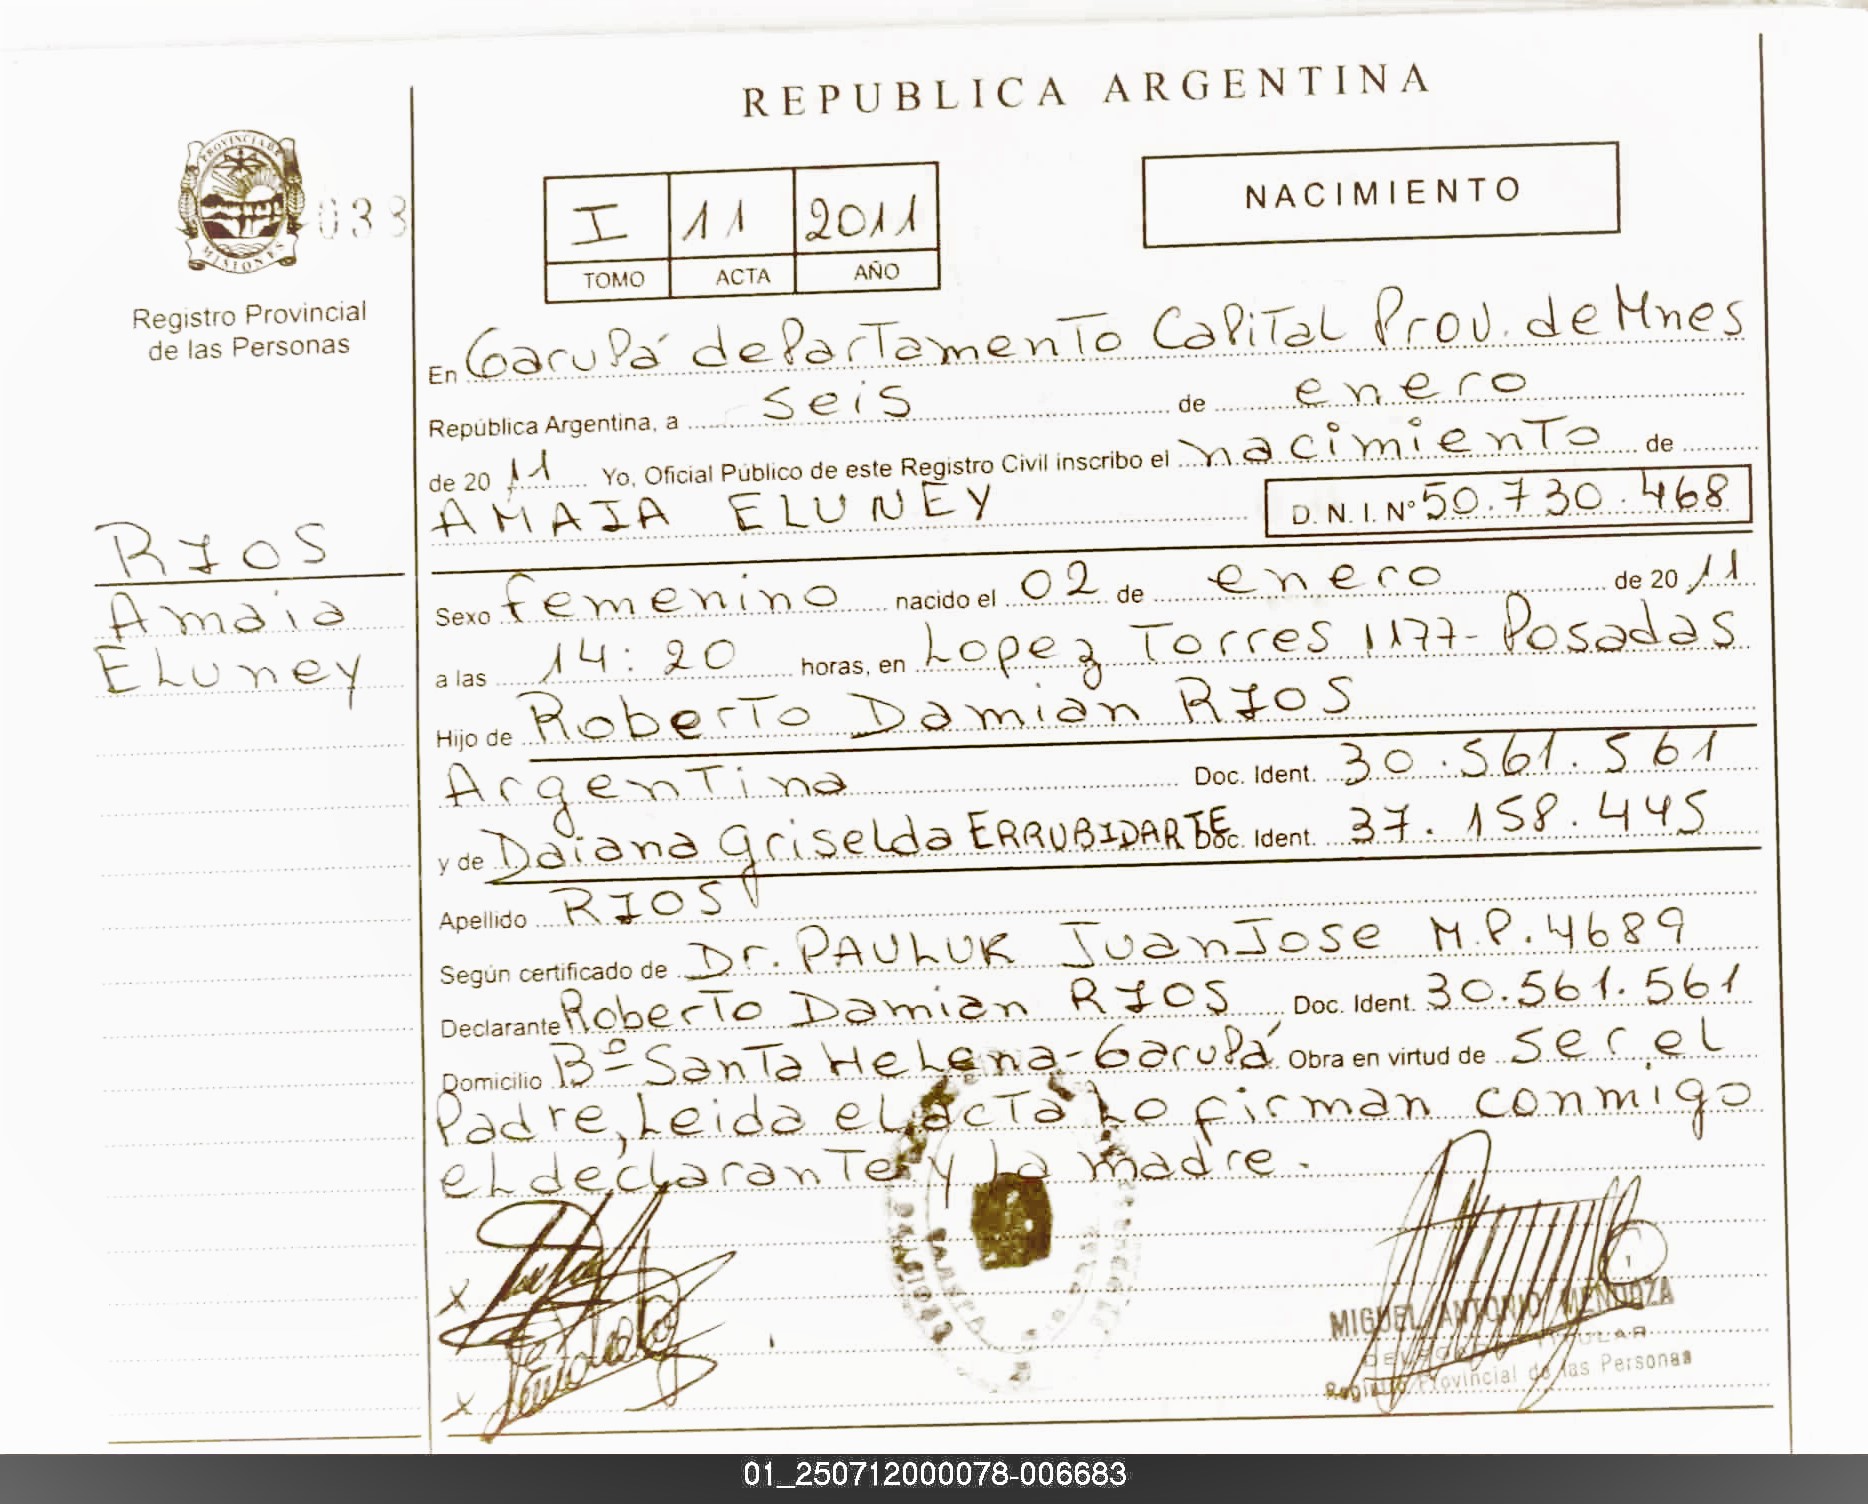 REPUBLICA ARGENTINA
PROVINCIA DE
MISIONES
033
I 11 2011
TOMO ACTA AÑO
NACIMIENTO
Registro Provincial
de las Personas
En Garupá departamento Capital Prov. de Mnes
República Argentina, a seis de enero
de 2011 Yo, Oficial Público de este Registro Civil inscribo el nacimiento de
AMAIA ELUNEY D. N. I. Nº 50.730.468
RIOS
Amaia
Eluney
Sexo femenino nacido el 02 de enero de 2011
a las 14:20 horas, en Lopez Torres 1177- Posadas
Hijo de Roberto Damian RIOS
Argentina Doc. Ident. 30.561.561
y de Daiana Griselda ERRUBIDARTE Doc. Ident. 37.158.445
Apellido RIOS
Según certificado de Dr. PAULUK Juan Jose M.P. 4689
Declarante Roberto Damian RIOS Doc. Ident. 30.561.561
Domicilio Bº- Santa Helena- Garupá Obra en virtud de ser el
Padre, Leida el acta Lo firman conmigo
el declarante y la madre.
x
x
MIGUEL ANTONIO MENDOZA
DELEGADO TITULAR
Registro Provincial de las Personas
01_250712000078-006683